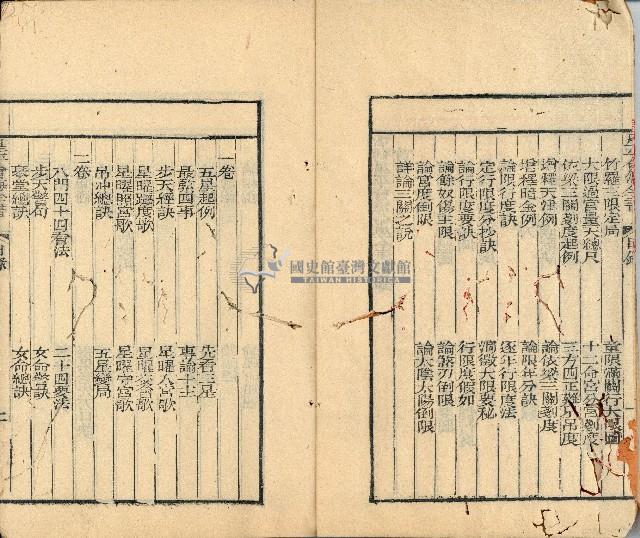 竹羅三限定局
童限滿闕行大限圖
大限過宮量天總尺
十二命宮公宮劉度
依梁三關劉度起例
三方四正難只吊度
增釋天津例
論依梁三關劉度
增釋晤金例
論限年分訣
論限行度訣
逐年行限度法
定行限度分抄訣
洞微大限要秘
論行限度要訣
行限度假如
論餘奴傷主限
論煞刃倒限
論宮度倒限
論太陰太陽倒限
詳論三關之說
一卷
五星起例
先看三星
最緊四事
專論十主
步天經訣
星曜入宮歌
星曜躔度歌
星曜照宮歌
星曜守宮歌
吊沖總訣
五星變局
二卷
八門四十四看法
二十四要法
步天警句
女命警訣
琴堂總訣
女命總訣
國史館臺灣文獻館
TAIWAN HISTORICA